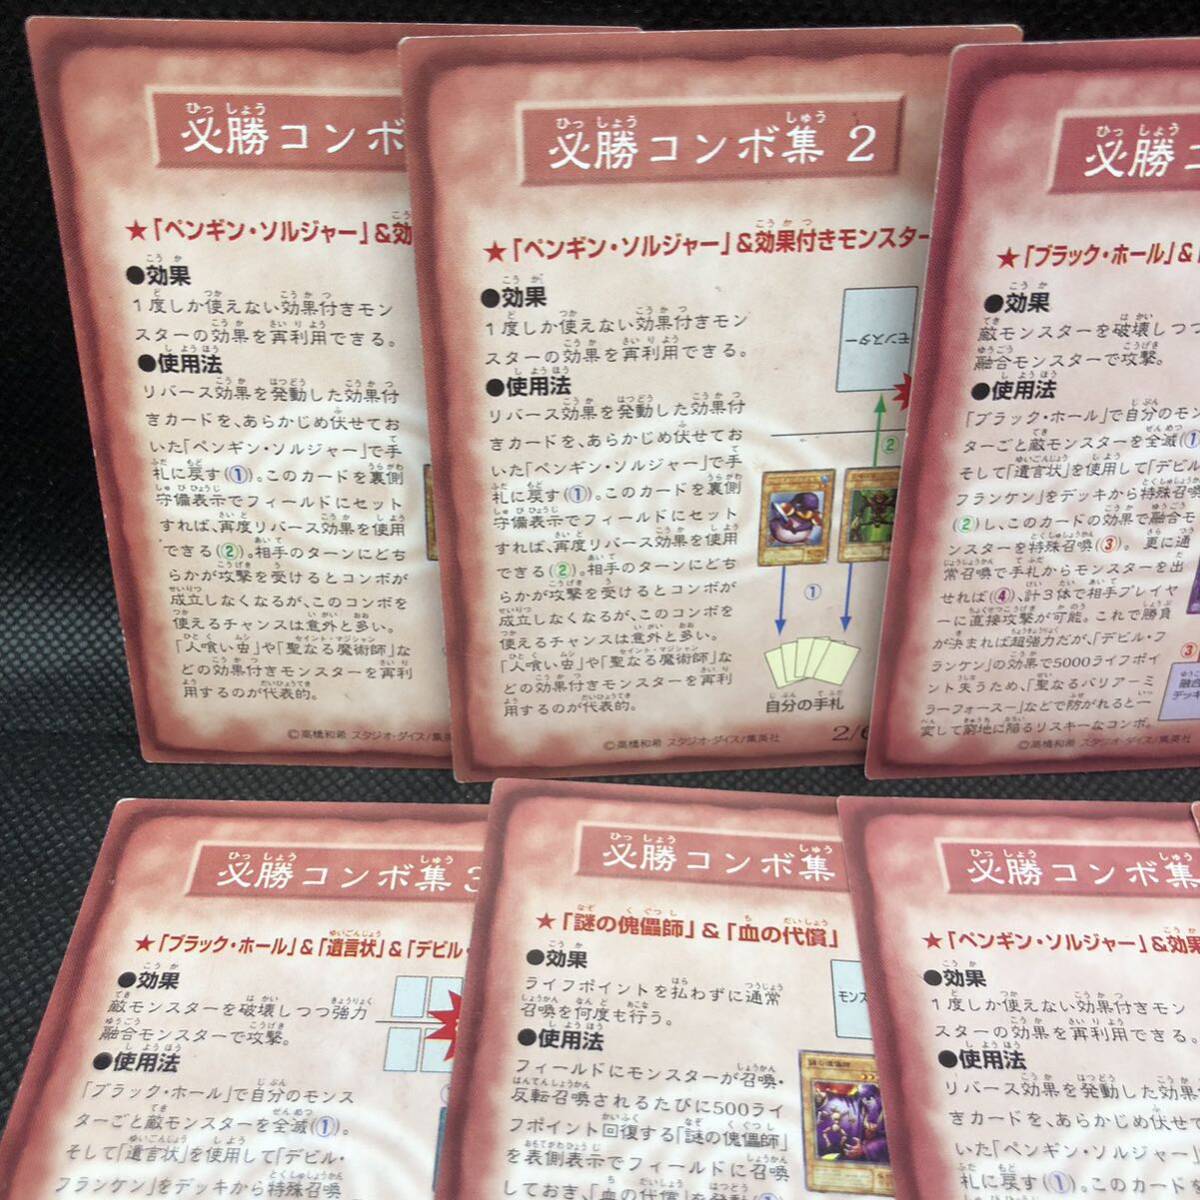 必勝コンボ
★「ペンギン・ソルジャー」&効
●効果
1度しか使えない効果付きモン
スターの効果を再利用できる。
●使用法
リバース効果を発動した効果付
きカードを、あらかじめ伏せてお
いた「ペンギン・ソルジャー」で手
札に戻す(①)。このカードを裏側
守備表示でフィールドにセット
すれば、再度リバース効果を使用
できる(②)。相手のターンにどち
らかが攻撃を受けるとコンボが
成立しなくなるが、このコンボを
使えるチャンスは意外と多い。
「人喰い虫」や「聖なる魔術師」な
どの効果付きモンスターを再利
用するのが代表的。
©高橋和希 スタジオ・ダイス/集英社
必勝コンボ集 2
★「ペンギン・ソルジャー」&効果付きモンスター
●効果
1度しか使えない効果付きモン
スターの効果を再利用できる。
●使用法
リバース効果を発動した効果付
きカードを、あらかじめ伏せてお
いた「ペンギン・ソルジャー」で手
札に戻す(①)。このカードを裏側
守備表示でフィールドにセット
すれば、再度リバース効果を使用
できる(②)。相手のターンにどち
らかが攻撃を受けるとコンボが
成立しなくなるが、このコンボを
使えるチャンスは意外と多い。
「人喰い虫」や「聖なる魔術師」な
どの効果付きモンスターを再利
用するのが代表的。
モンスター
②
①
自分の手札
©高橋和希 スタジオ・ダイス/集英社
2/6
必勝コ
★「ブラック・ホール」&
●効果
敵モンスターを破壊しつつ
融合モンスターで攻撃。
●使用法
「ブラック・ホール」で自分のモン
ターごと敵モンスターを全滅(①
そして「遺言状」を使用して「デビル・
フランケン」をデッキから特殊召喚
(②)し、このカードの効果で融合モ
ンスターを特殊召喚(③)。更に通
常召喚で手札からモンスターを出
せれば(④)、計3体で相手プレイヤ
ーに直接攻撃が可能。これで勝負
が決まれば超強力だが、「デビル・フ
ランケン」の効果で5000ライフポイ
ント失うため、「聖なるバリアーミ
ラーフォース-」などで防がれると一
変して窮地に陥るリスキーなコンボ。
③
融合
デッキ
©高橋和希 スタジオ・ダイス/集英社
必勝コンボ集 3
★「ブラック・ホール」&「遺言状」&「デビル・
●効果
敵モンスターを破壊しつつ強力
融合モンスターで攻撃。
●使用法
「ブラック・ホール」で自分のモンス
ターごと敵モンスターを全滅(①)。
そして「遺言状」を使用して「デビル・
フランケン」をデッキから特殊召喚
必勝コンボ集
★「謎の傀儡師」&「血の代償」
●効果
ライフポイントを払わずに通常
召喚を何度も行う。
●使用法
フィールドにモンスターが召喚・
反転召喚されるたびに500ライ
フポイント回復する「謎の傀儡師」
を表側表示でフィールドに召喚
しておき、「血の代償」を発動(①)
モンス
謎の傀儡師
必勝コンボ集
★「ペンギン・ソルジャー」&効果
●効果
1度しか使えない効果付きモン
スターの効果を再利用できる。
●使用法
リバース効果を発動した効果
きカードを、あらかじめ伏せて
いた「ペンギン・ソルジャー」
札に戻す(①)。このカード